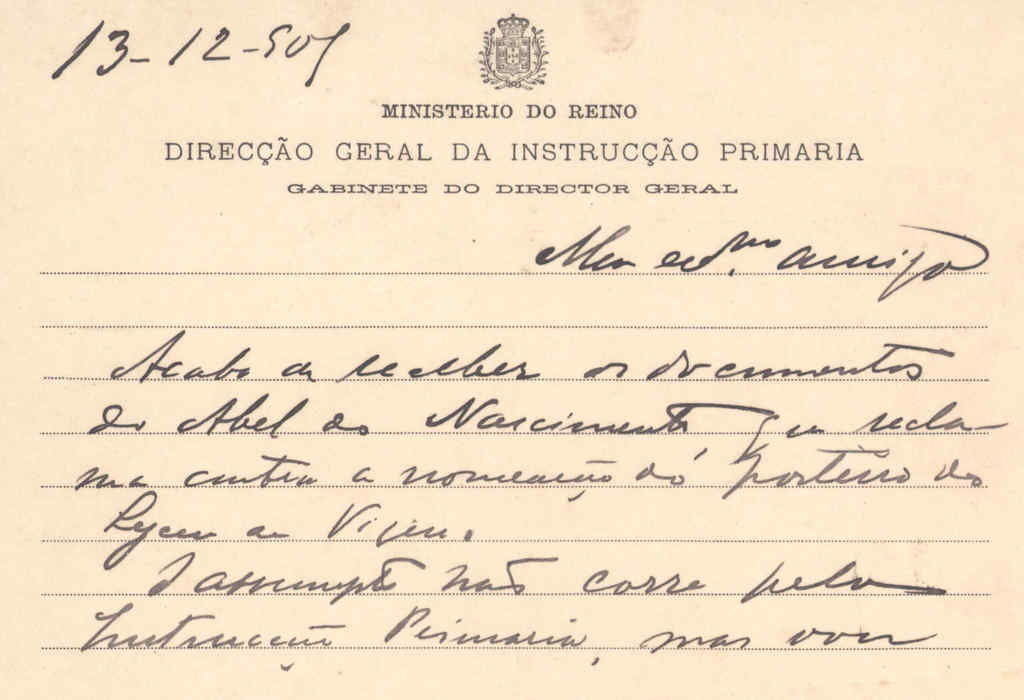 13-12-907
MINISTERIO DO REINO
DIRECÇÃO GERAL DA INSTRUCÇÃO PRIMARIA
GABINETE DO DIRECTOR GERAL
Meu amigo
Acabo de receber os documentos
do Abel do Nascimento, que recla-
ma contra a nomeação do porteiro do
Lyceu de Viseu.
O assumpto não corre pela
Instrucção Primaria, mas vou